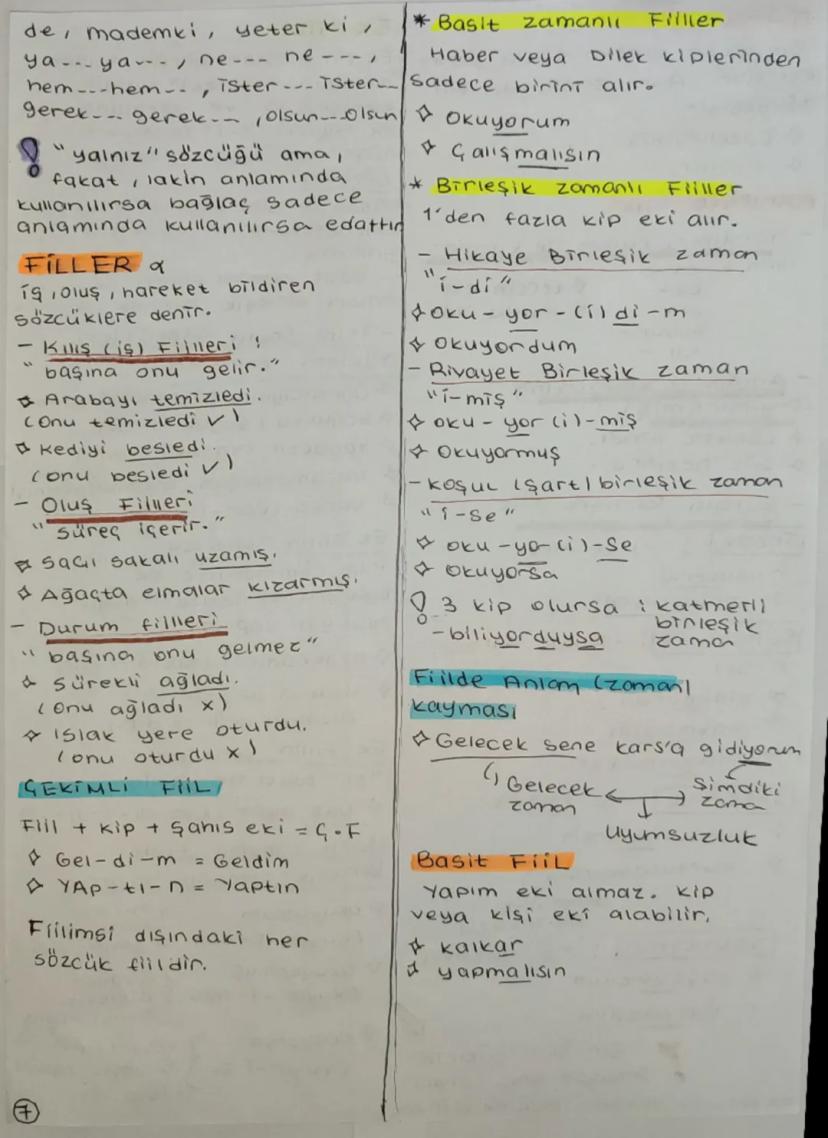 de, mademki, yeter ki,
ya---ya---, ne--- ne---,
hem---hem--, ister---ister--
gerek--- gerek--, olsun---olsun
"yalnız" sözcüğü ama,
fakat, lakin anlamında
kullanılırsa bağlaç sadece
anlamında kullanılırsa edattır
FİLLER
iş, oluş, hareket bildiren
sözcüklere denir.
- Kılış (iş) Fiilleri :
"başına onu gelir."
Arabayı temizledi.
(onu temizledi ✓)
Kediyi besledi.
(onu besledi ✓)
- Oluş Fiilleri
"süreç içerir."
Saçı sakalı uzamış.
Ağaçta elmalar kızarmış.
- Durum fiilleri
"başına onu gelmez"
Sürekli ağladı.
(onu ağladı x)
Islak yere oturdu.
(onu oturdu x)
ÇEKİMLİ FİİL
Fiil + kip + şahıs eki = Ç.F
Gel-di-m = Geldim
YAp-tı-n = Yaptın
Fiilimsi dışındaki her
sözcük fiildir.
7
* Basit zamanlı Fiiller
Haber veya Dilek kiplerinden
sadece birini alır.
Okuyorum
Çalışmalısın
* Birleşik zamanlı Fiiller
1'den fazla kip eki alır.
- Hikaye Birleşik zaman
"i-di"
oku-yor-(i)di-m
Okuyordum
- Rivayet Birleşik zaman
"i-miş"
oku-yor(i)-miş
Okuyormuş
- Koşul (şart) birleşik zaman
"i-se"
oku-yo-(i)-se
Okuyorsa
! 3 kip olursa : katmerli
birleşik
-biliyorduysa zaman
Fiilde Anlam (zaman)
kayması
Gelecek sene kars'a gidiyorum
Gelecek zaman
Şimdiki zama
Uyumsuzluk
Basit FİİL
Yapım eki almaz. Kip
veya kişi eki alabilir.
kalkar
yapmalısın